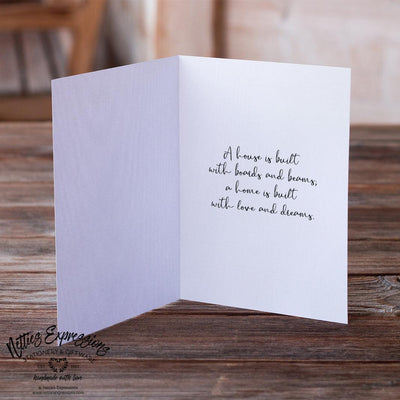 A house is built
with boards and beams;
a home is built
with love and dreams.
Netties Expressions
STATIONERY & GIFTWARE
Handmade with love